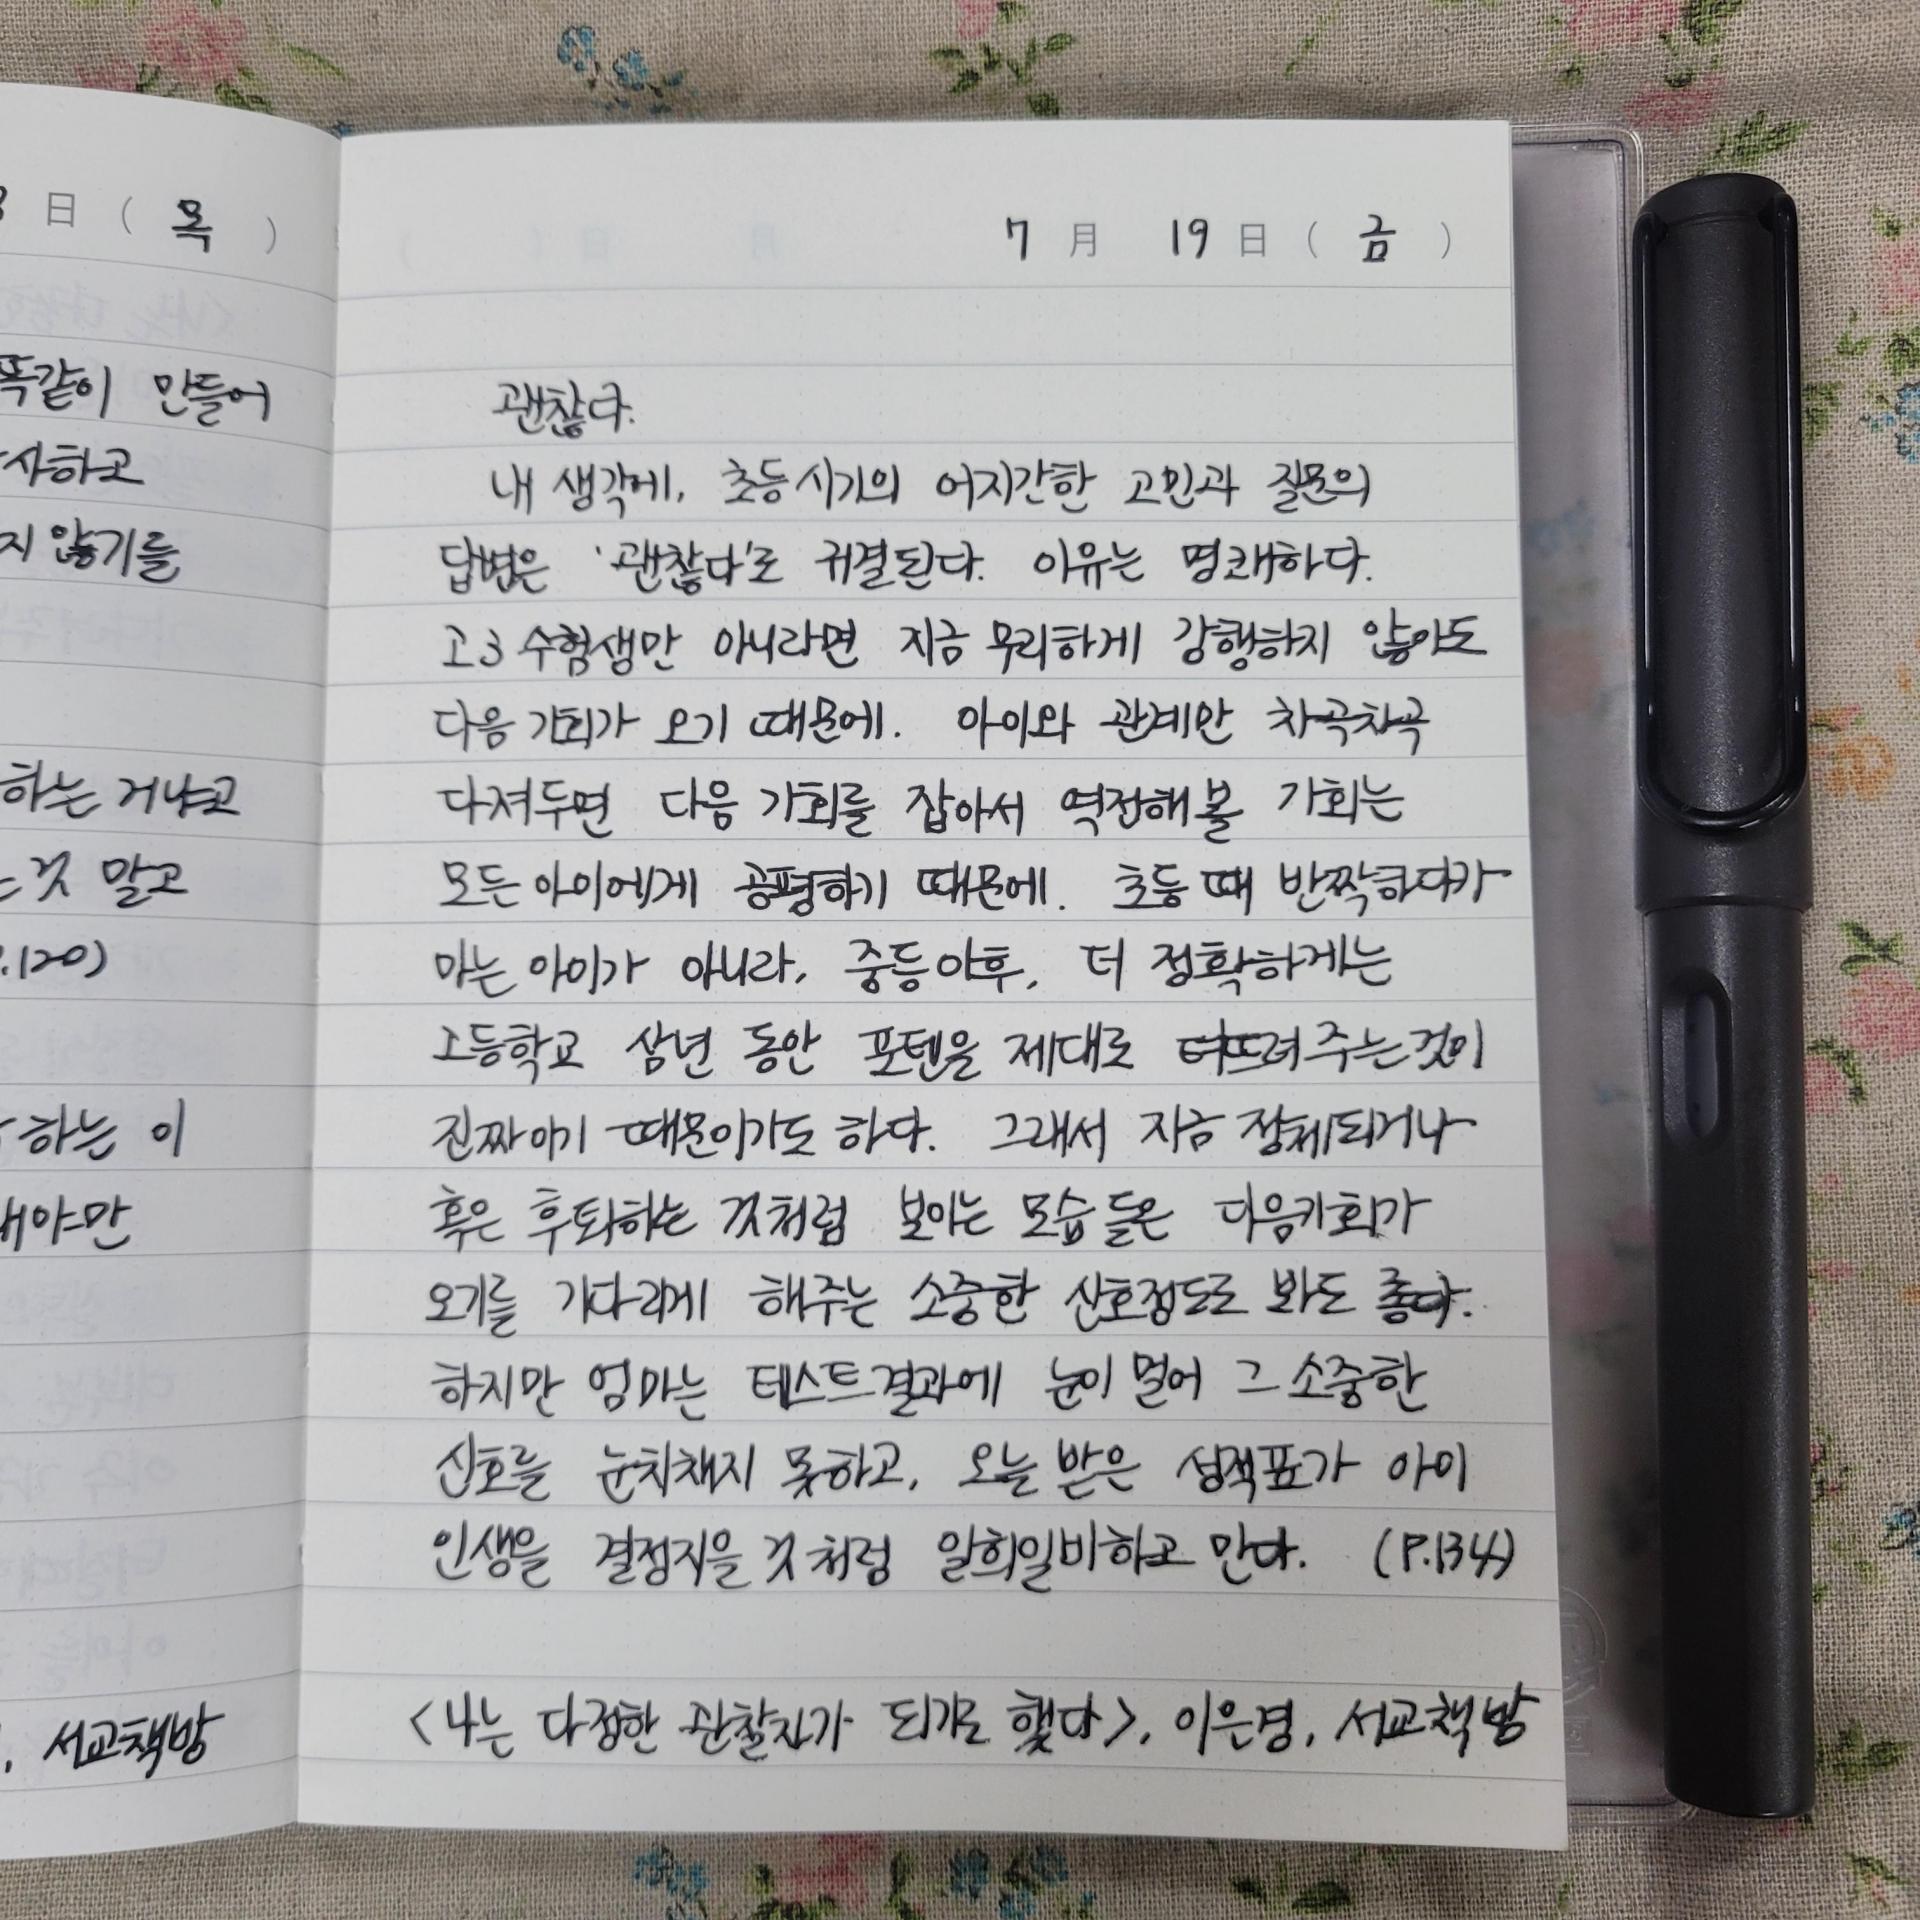 日 ( 목 )
똑같이 만들어
사하고
지 않기를
하는 거냐고
것 말고
.120)
하는 이
내야만
, 서교책방
7 月 19 日 ( 금 )
괜찮다.
내 생각에, 초등시기의 어지간한 고민과 질문의
답변은 '괜찮다'로 귀결된다. 이유는 명쾌하다.
고3 수험생만 아니라면 지금 무리하게 강행하지 않아도
다음 기회가 오기 때문에. 아이와 관계만 차곡차곡
다져두면 다음 기회를 잡아서 역전해볼 기회는
모든 아이에게 공평하기 때문에. 초등 때 반짝하다가
마는 아이가 아니라, 중등이후, 더 정확하게는
고등학교 삼년 동안 포텐을 제대로 터뜨려 주는것이
진짜이기 때문이기도 하다. 그래서 지금 정체되거나
혹은 후퇴하는 것처럼 보이는 모습들은 다음기회가
오기를 기다리게 해주는 소중한 신호정도로 봐도 좋다.
하지만 엄마는 테스트결과에 눈이 멀어 그 소중한
신호를 눈치채지 못하고, 오늘 받은 성적표가 아이
인생을 결정지을 것처럼 일희일비하고 만다. (P.134)
<나는 다정한 관찰자가 되기로 했다>, 이은경, 서교책방